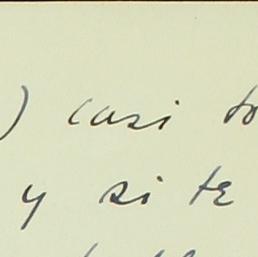 ) casi to
y si te